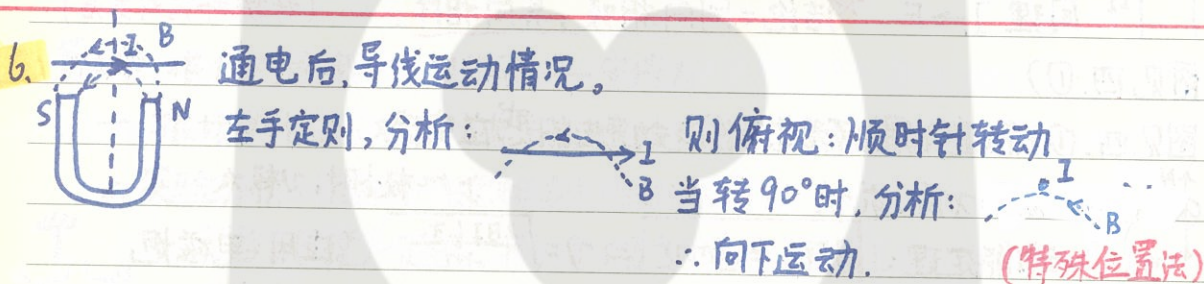 6.
I B
S N
通电后,导线运动情况。
左手定则,分析:
I
B
则俯视:顺时针转动
当转90°时,分析:
I
B
∴向下运动.
(特殊位置法)